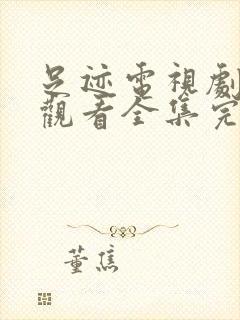 足迹電視劇
觀看全集完
董焦